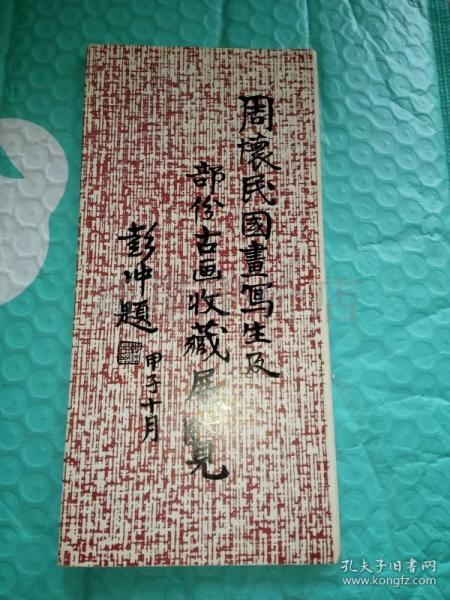 周懷民國畫寫生及
部份古画收藏展覽
彭冲題
甲子十月
孔夫子旧书网
www.kongfz.com